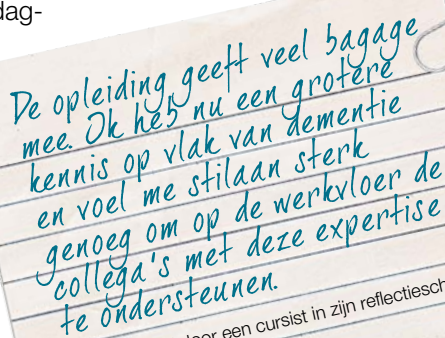 dag-
De opleiding geeft veel bagage
mee. Ik heb nu een grotere
kennis op vlak van dementie
en voel me stilaan sterk
genoeg om op de werkvloer de
collega's met deze expertise
te ondersteunen.
een cursist in zijn